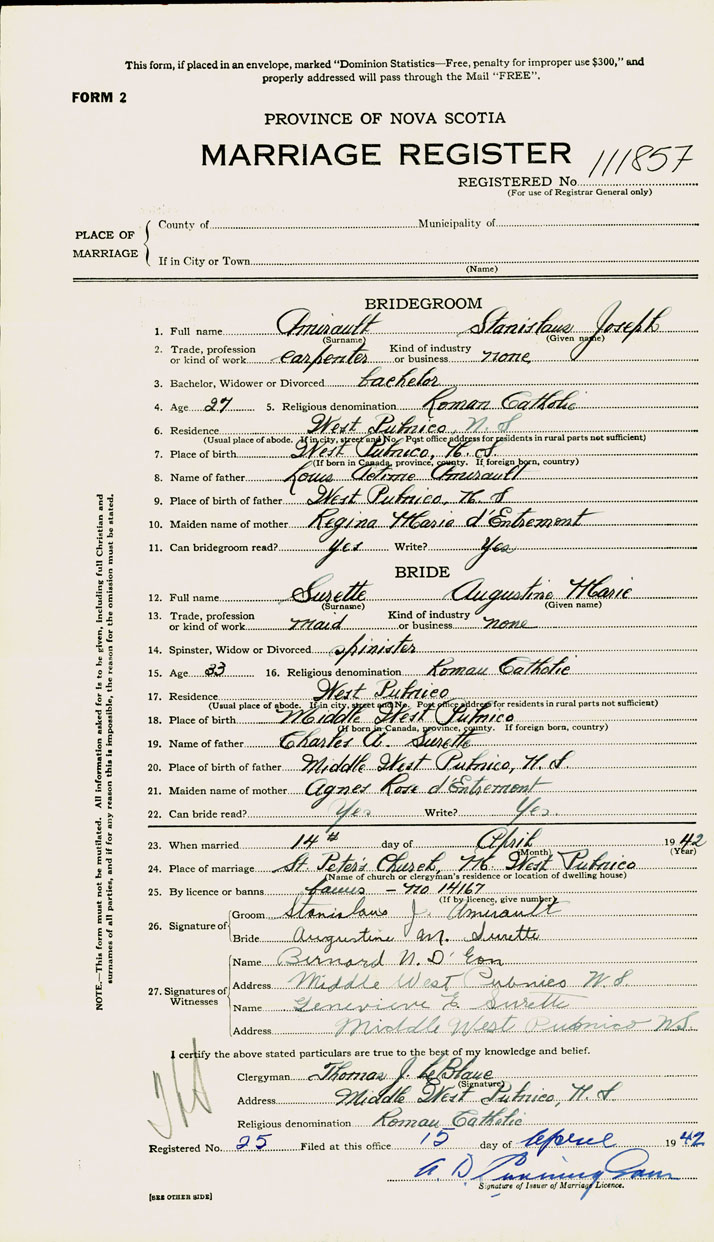 This form, if placed in an envelope, marked "Dominion Statistics—Free, penalty for improper use $300," and
properly addressed will pass through the Mail "FREE".
FORM 2
PROVINCE OF NOVA SCOTIA
MARRIAGE REGISTER
REGISTERED No. 111857
(For use of Registrar General only)
PLACE OF MARRIAGE
County of Municipality of
If in City or Town
(Name)
BRIDEGROOM
1. Full name Amirault Stanislaus Joseph
(Surname) (Given name)
2. Trade, profession or kind of work carpenter Kind of industry or business none
3. Bachelor, Widower or Divorced bachelor
4. Age 27 5. Religious denomination Roman Catholic
6. Residence West Pubnico, N. S
(Usual place of abode. If in city, street and No. Post office address for residents in rural parts not sufficient)
7. Place of birth West Pubnico, N. S.
(If born in Canada, province, county. If foreign born, country)
8. Name of father Louis Amirault
9. Place of birth of father West Pubnico, N. S
10. Maiden name of mother Regina Marie d'Entremont
11. Can bridegroom read? Yes Write? Yes
BRIDE
12. Full name Surette Augustine Marie
(Surname) (Given name)
13. Trade, profession or kind of work maid Kind of industry or business none
14. Spinster, Widow or Divorced spinister
15. Age 33 16. Religious denomination Roman Catholic
17. Residence West Pubnico
(Usual place of abode. If in city, street and No. Post office address for residents in rural parts not sufficient)
18. Place of birth Middle West Pubnico
(If born in Canada, province, county. If foreign born, country)
19. Name of father Charles A. Surette
20. Place of birth of father Middle West Pubnico, N. S.
21. Maiden name of mother Agnes Rose d'Entremont
22. Can bride read? Yes Write? Yes.
23. When married 14th day of April 1942
(Month) (Year)
24. Place of marriage St Peter's Church, M. West Pubnico
(Name of church or clergyman's residence or location of dwelling house)
25. By licence or banns – no 14167
(If by licence, give number)
26. Signature of
Groom Stanislaus J. Amirault
Bride Augustine M. Surette
27. Signatures of Witnesses
Name Bernard N. D'Eon
Address Middle West Pubnico N.S.
Name Genevieve E Surette
Address Middle West Pubnico N.S.
I certify the above stated particulars are true to the best of my knowledge and belief.
Clergyman Thomas J. LeBlanc
(Signature)
Address Middle West Pubnico, N. S
Religious denomination Roman Catholic
Registered No. 25 Filed at this office 15 day of April 1942
A. D. Cunningham
Signature of Issuer of Marriage Licence.
[SEE OTHER SIDE]
NOTE.—This form must not be mutilated. All information asked for is to be given, including full Christian and
surnames of all parties, and if for any reason this is impossible, the reason for the omission must be stated.